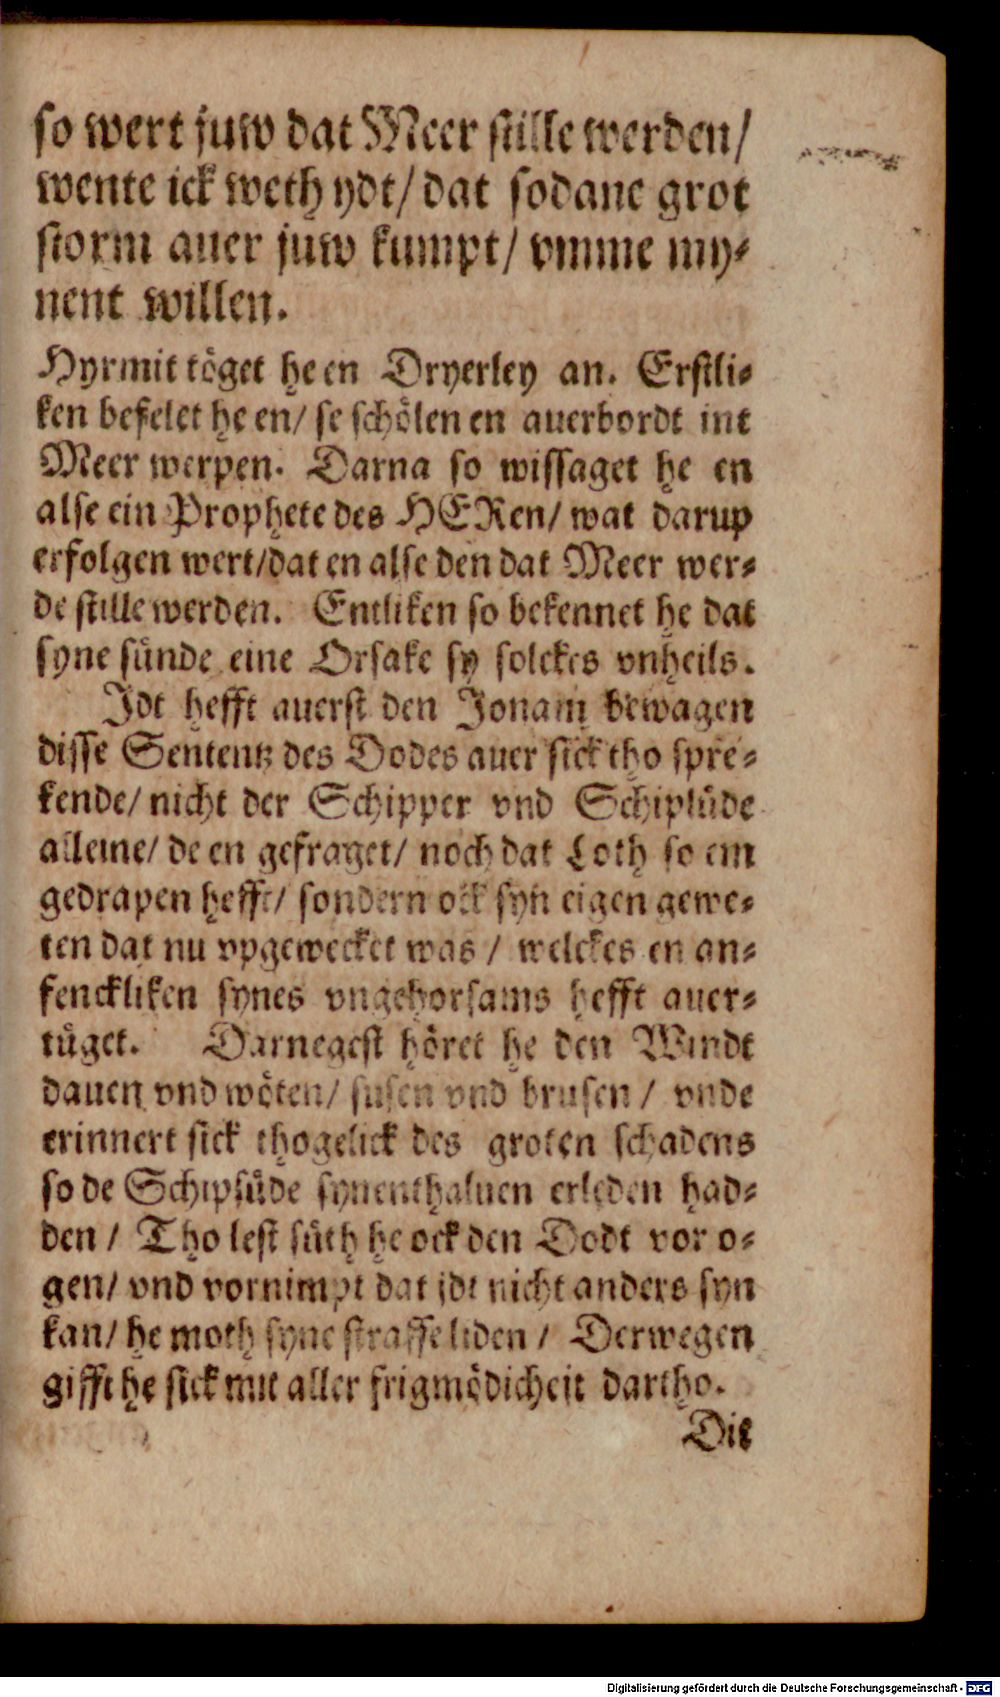 so wert juw dat Meer stille werden/
wente ick weth ydt/ dat sodane grot
storm auer juw kumpt/ vmme my⸗
nent willen.
Hyrmit töget he en Dryerley an. Erstli⸗
ken befelet he en/ se schölen en auerbordt int
Meer werpen. Darna so wissaget he en
alse ein Prophete des HERen/ wat darup
erfolgen wert/ dat en alse den dat Meer wer⸗
de stille werden. Entliken so bekennet he dat
syne sünde eine Orsake sy solckes vnheils.
Idt hefft auerst den Jonam bewagen
disse Sententz des Dodes auer sick tho spre⸗
kende/ nicht der Schipper vnd Schiplüde
alleine/ de en gefraget/ noch dat Loth so em
gedrapen hefft/ sondern ock syn eigen gewe⸗
ten dat nu vpgewecket was / welckes en an⸗
fenckliken synes vngehorsams hefft auer⸗
tüget. Darnegest höret he den Windt
dauen vnd wöten/ susen vnd brusen / vnde
erinnert sick thogelick des groten schadens
so de Schiplüde synenthaluen erleden had⸗
den / Tho lest süth he ock den Dodt vor o⸗
gen/ vnd vornimpt dat jdt nicht anders syn
kan/ he moth syne straffe liden / Derwegen
gifft he sick mit aller frigmödicheit dartho.
Dit
Digitalisierung gefördert durch die Deutsche Forschungsgemeinschaft - DFG